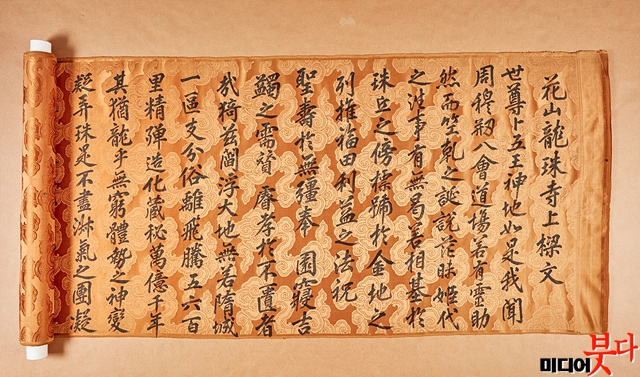 花山龍珠寺上樑文
世尊上五王神地如是我聞
周穆刱八會道場若有靈助
然而竺乾之誕說茫昧姬代
之往事有無曷若相基於
珠丘之傍標踊於金地之
列推福田利益之法祝
聖壽於無疆奉 園寢吉
蠲之需賛 睿孝於不匱者
哉猗玆閻浮大地無若隋城
一區支分俗離飛騰五六百
里精彈造化藏秘萬億千年
其猶龍乎無窮體勢之神變
弄珠是不盡淋氣之團凝
미디어붓다